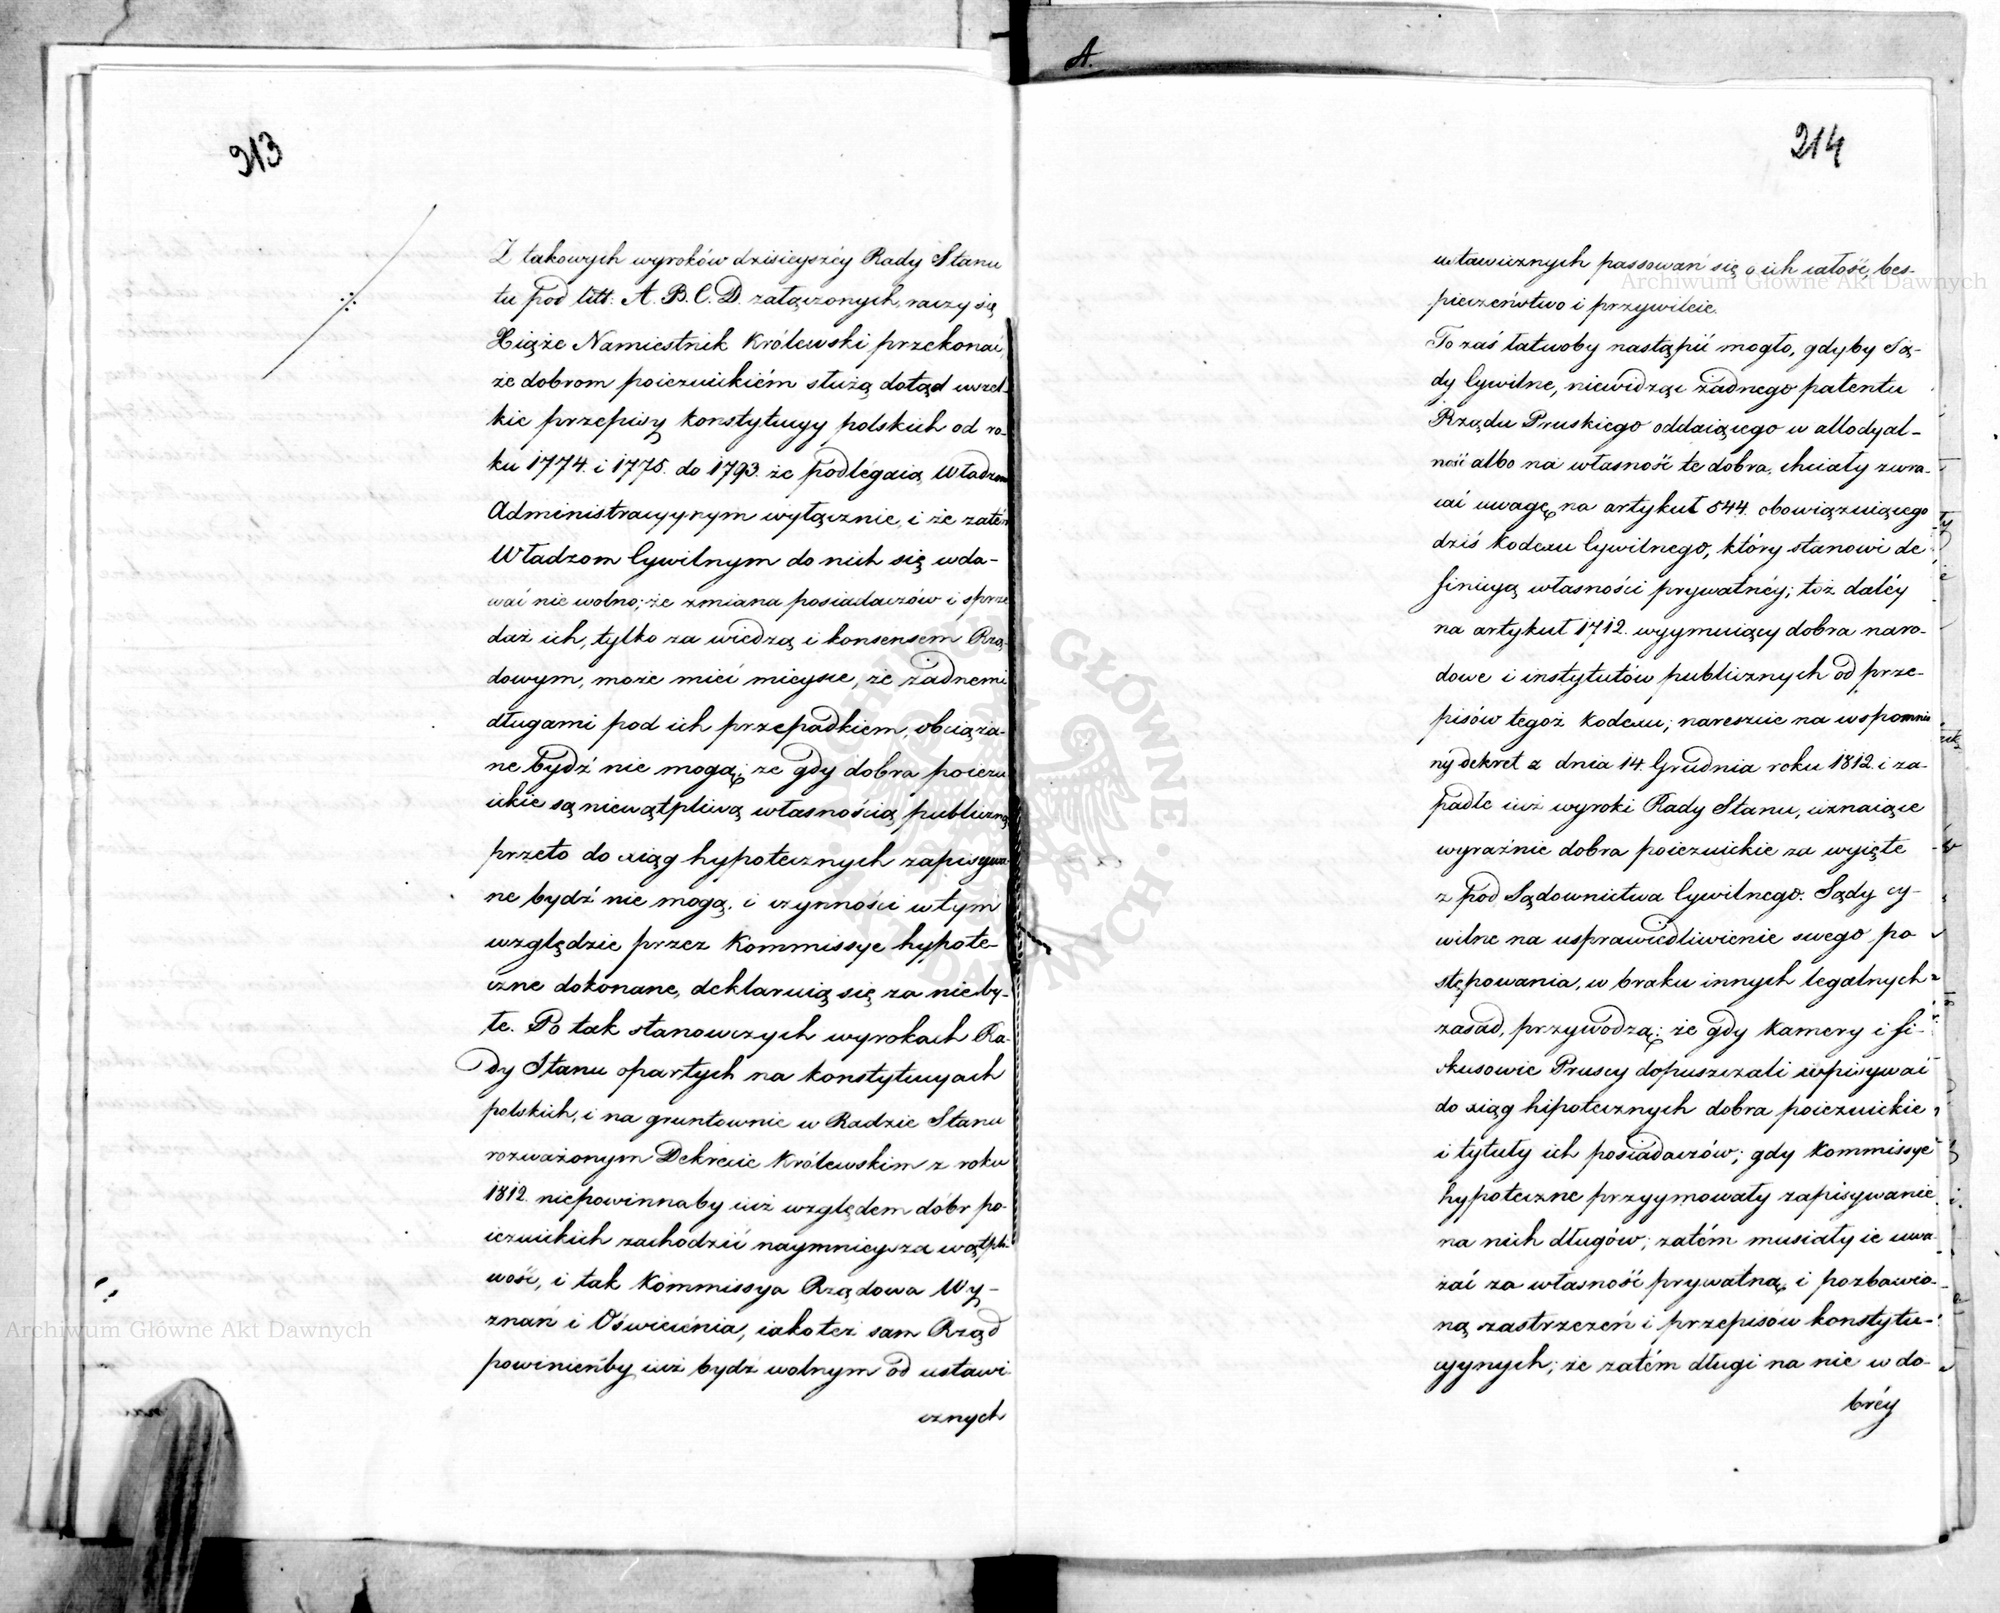 213
Z takowych wyroków dzisieyszéy Rady Stanu
tu pod litt: A. B. C. D. załączonych, raczy się
Xiąże Namiestnik Królewski przekonać,
że dobrom poiezuickiém służą dotąd wszel-
kie przepisy konstytucyy polskich od ro-
ku 1774. i 1775. do 1793. że podlegaią Władzom
Administracyynym wyłącznie, i że zatém
Władzom Cywilnym do nich się wda-
wać nie wolno; że zmiana posiadaczów i sprze
daż ich, tylko za wiedzą i konsensem Rzą-
dowym, może mieć mieysce, że żadnemi
długami pod ich przepadkiem, obciąża-
ne bydź nie mogą; że gdy dobra poiezu
ickie są niewątpliwą własnością publiczną
przeto do xiąg hypotecznych zapisywa-
ne bydź nie mogą, i czynności w tym
względzie przez Kommissye hypote-
czne dokonane, deklaruią się za nieby-
łe. Po tak stanowczych wyrokach Ra-
dy Stanu opartych na konstytucyach
polskich, i na gruntownie w Radzie Stanu
rozważonym Dekrecie Królewskim z roku
1812. niepowinnaby iuż względem dóbr po-
iezuickich zachodzić naymnieysza wątpli-
wość, i tak Kommissya Rządowa Wy-
znań i Oświecénia, iakoteż sam Rząd
powinienby iuż bydź wolnym od ustawi
cznych
A.
214
ustawicznych passowań się o ich całość, bes-
pieczeństwo i przywileie.
To zaś łatwoby nastąpić mogło, gdyby Są-
dy Cywilne, niewidząc żadnego patentu
Rządu Pruskiego oddaiącego w allodyal-
ność albo na własność te dobra, chciały zwra-
cać uwagę na artykuł 544. obowiązuiącego
dziś Kodexu Cywilnego, który stanowi de
finicyą własności prywatnéy; toż daléy
na artykuł 1712. wyymuiący dobra naro-
dowe i instytutów publicznych od prze-
pisów tegoż Kodexu; nareszcie na wspomnio
ny dekret z dnia 14. Grudnia roku 1812. i za-
padłe iuż wyroki Rady Stanu, uznaiące
wyraźnie dobra poiezuickie za wyięte
z pod Sądownictwa Cywilnego. Sądy cy-
wilne na usprawiedliwienie swego po
stępowania, w braku innych legalnych
zasad, przywodzą; że gdy Kamery i fi-
skusowie Pruscy dopuszczali wpisywać
do xiąg hipotecznych dobra poiezuickie
i tytuły ich posiadaczów; gdy Kommissye
hypoteczne przyymowały zapisywanie
na nich długów; zatém musiały ie uwa-
żać za własność prywatną, i pozbawio-
ną zastrzeżeń i przepisów konstytu-
cyynych; że zatém długi na nie w do-
bréy
Archiwum Główne Akt Dawnych
Archiwum Główne Akt Dawnych